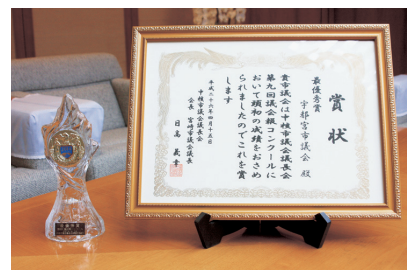 賞状
最優秀賞
宇都宮市議会 殿
貴市議会は中核市議会議長会
第九回議会報コンクールに
おいて頭初の成績をおさめ
られましたのでこれを賞
します
平成二十六年四月十五日
中核市議会議長会
会長 宮崎市議会議長
日高 義幸